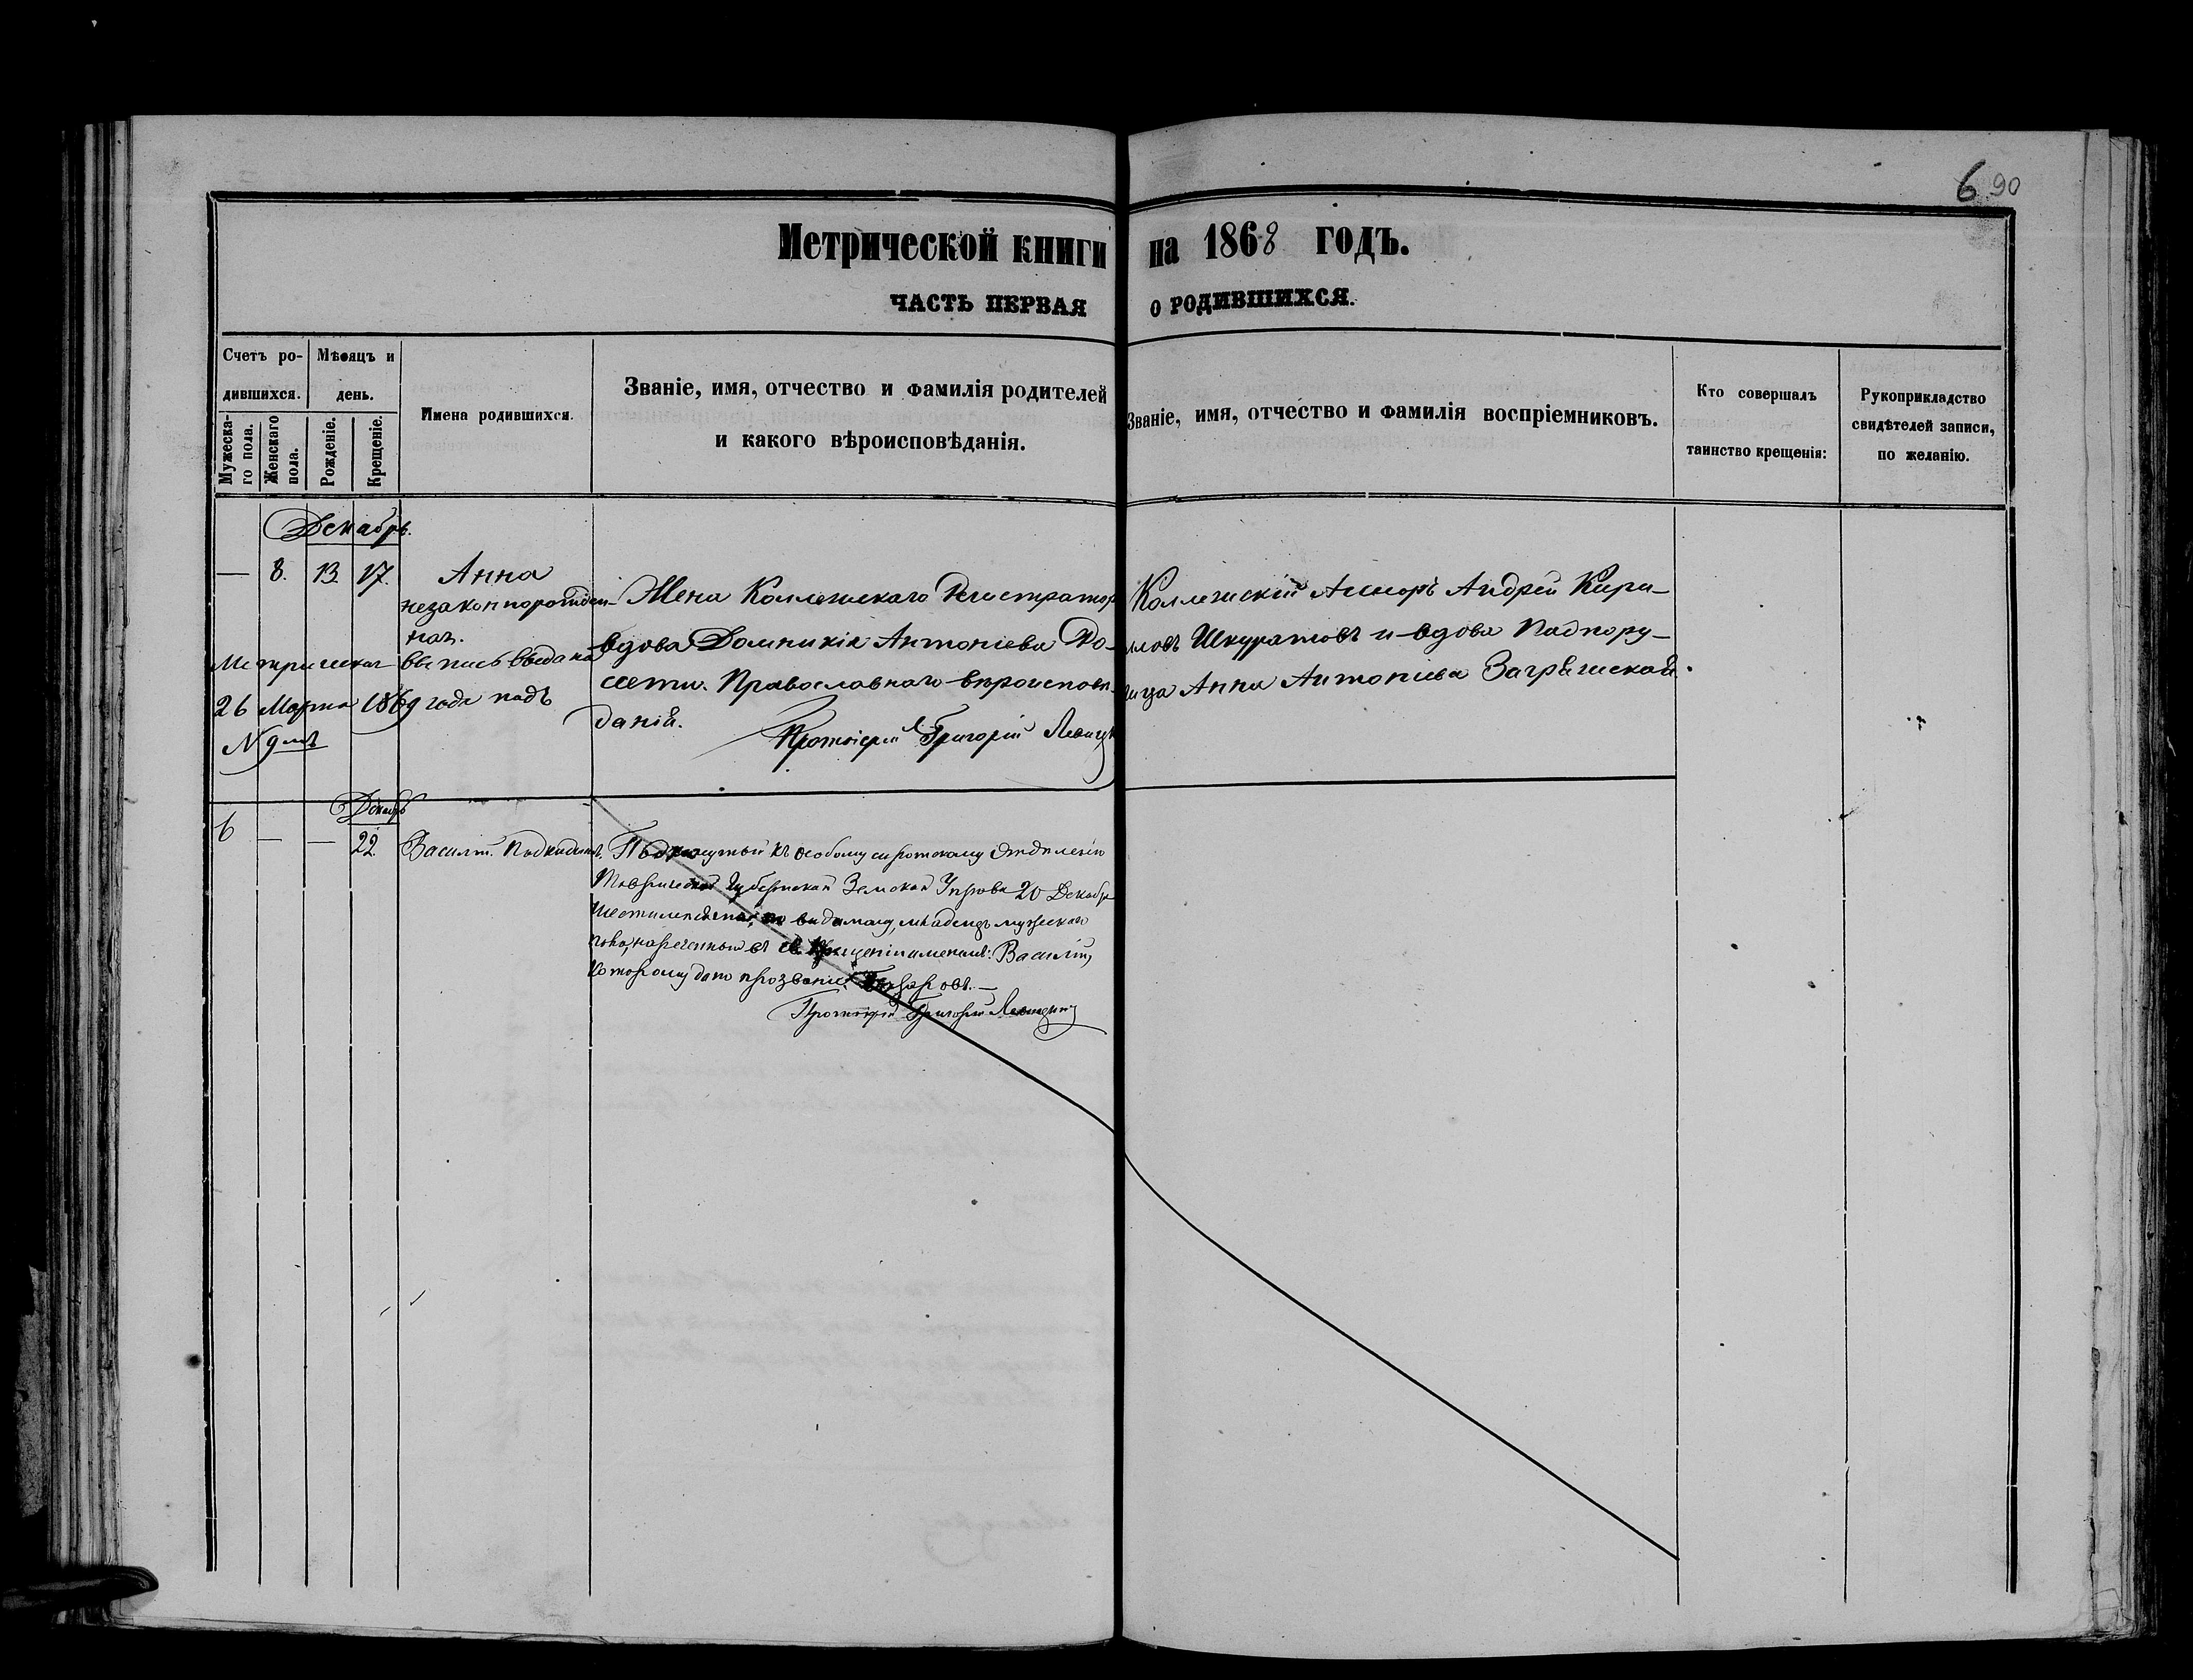 6 90
Метрической книги на 1868 годъ.
ЧАСТЬ ПЕРВАЯ О РОДИВШИХСЯ.
Счетъ ро-
дившихся.
Мужеска-
го пола.
Женскаго
пола.
Мѣсяцъ и
день.
Рожденіе.
Крещеніе.
Имена родившихся.
Званіе, имя, отчество и фамилія родителей
и какого вѣроисповѣданія.
Званіе, имя, отчество и фамилія воспріемниковъ.
Кто совершалъ
таинство крещенія:
Рукоприкладство
свидѣтелей записи,
по желанію.
Декабрь.
— 8. 13 17. Анна
незаконнорожден-
ная.
Метрическая выпись выдана
26 Марта 1869 года подъ
N 9мъ
Жена Коллежскаго Регистратора
вдова Домникія Антоніева До-
сети. Православнаго вѣроисповѣ-
данія.
Протоіерей Григорій
Коллежскій Ассесоръ Андрей Кири-
ловъ Шкуратовъ и вдова Подпору-
чица Анна Антоніева
Декабрь
6 — — 22. Василій. Подкидышъ.
Подкинутый къ особому сиротскому отдѣленію
Таврической Губернской Земской Управы 20 Декабря
по видимому, младенецъ мужескаго
пола, нареченный въ св. крещеніи именемъ: Василій,
которому дано прозваніе
Протоіерей Григорій